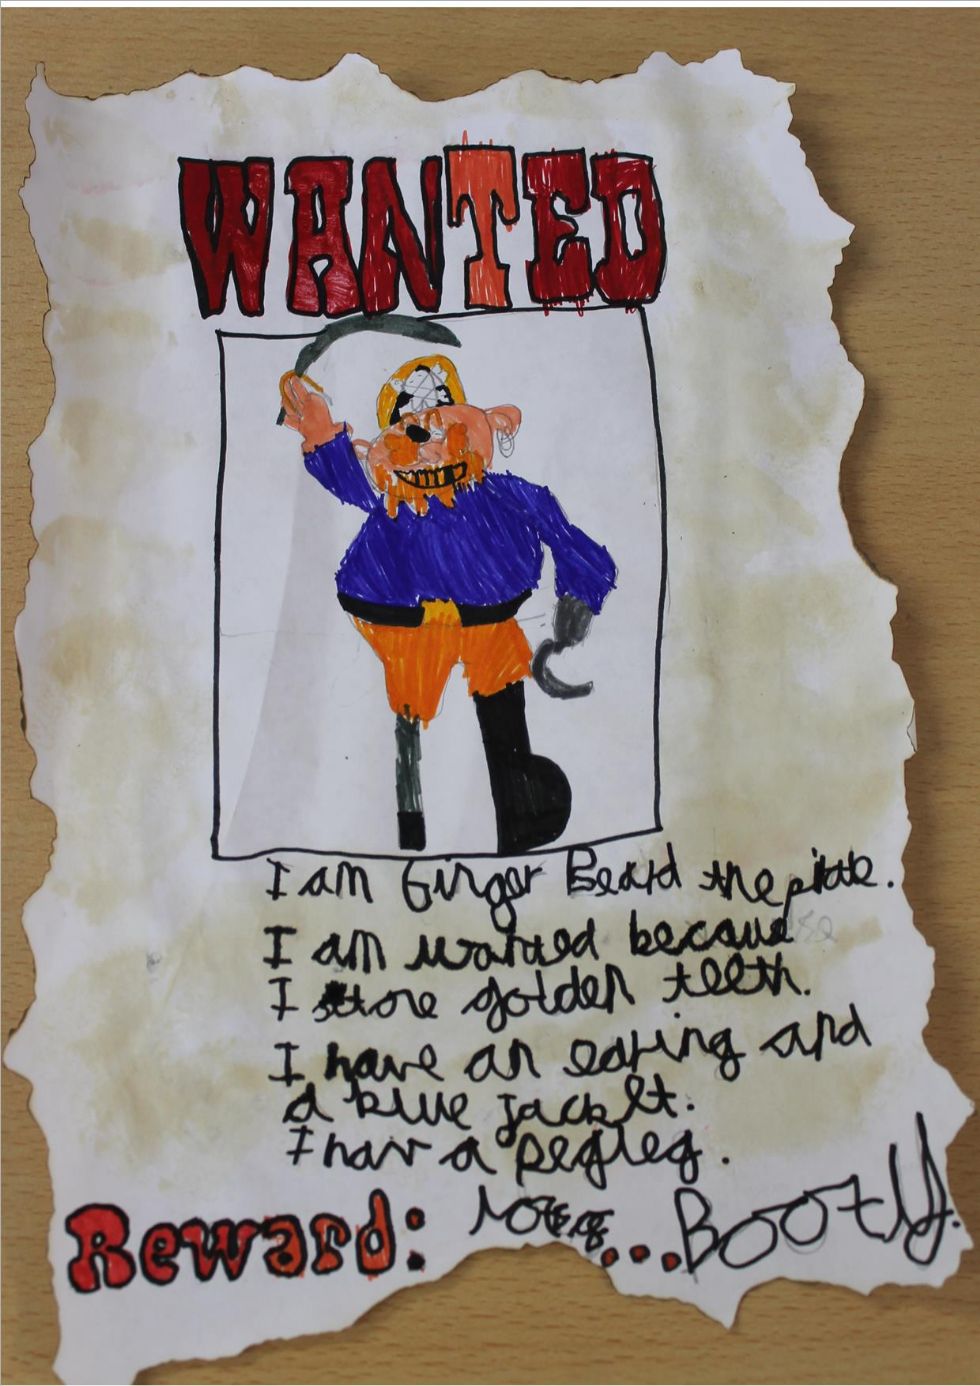 WANTED
I am Ginger Beard the pirate.
I am wanted because
I store golden teeth.
I have an earing and
a blue jacket.
I hav a pegleg.
Reward: lots of...Booty.